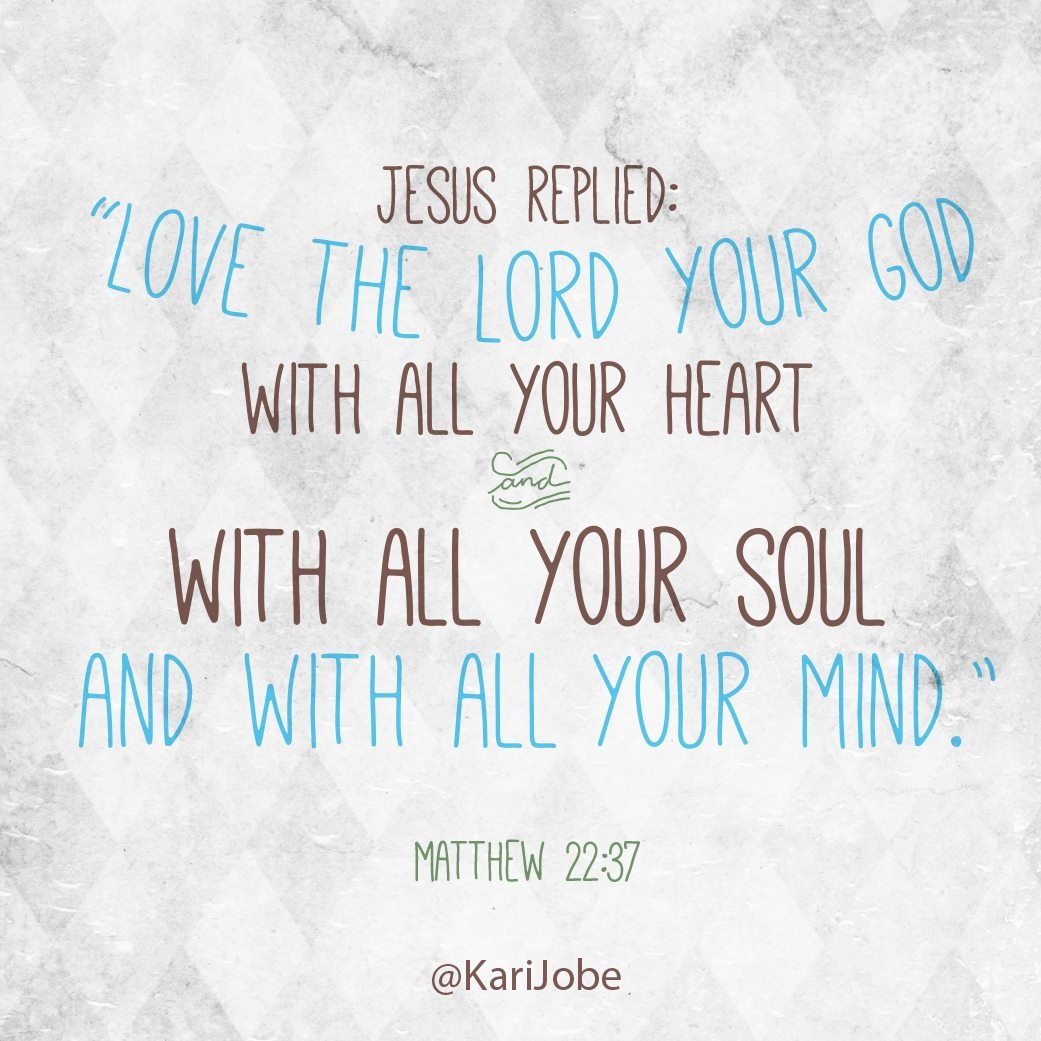 JESUS REPLIED:
"LOVE THE LORD YOUR GOD
WITH ALL YOUR HEART
and
WITH ALL YOUR SOUL
AND WITH ALL YOUR MIND."
MATTHEW 22:37
@KariJobe